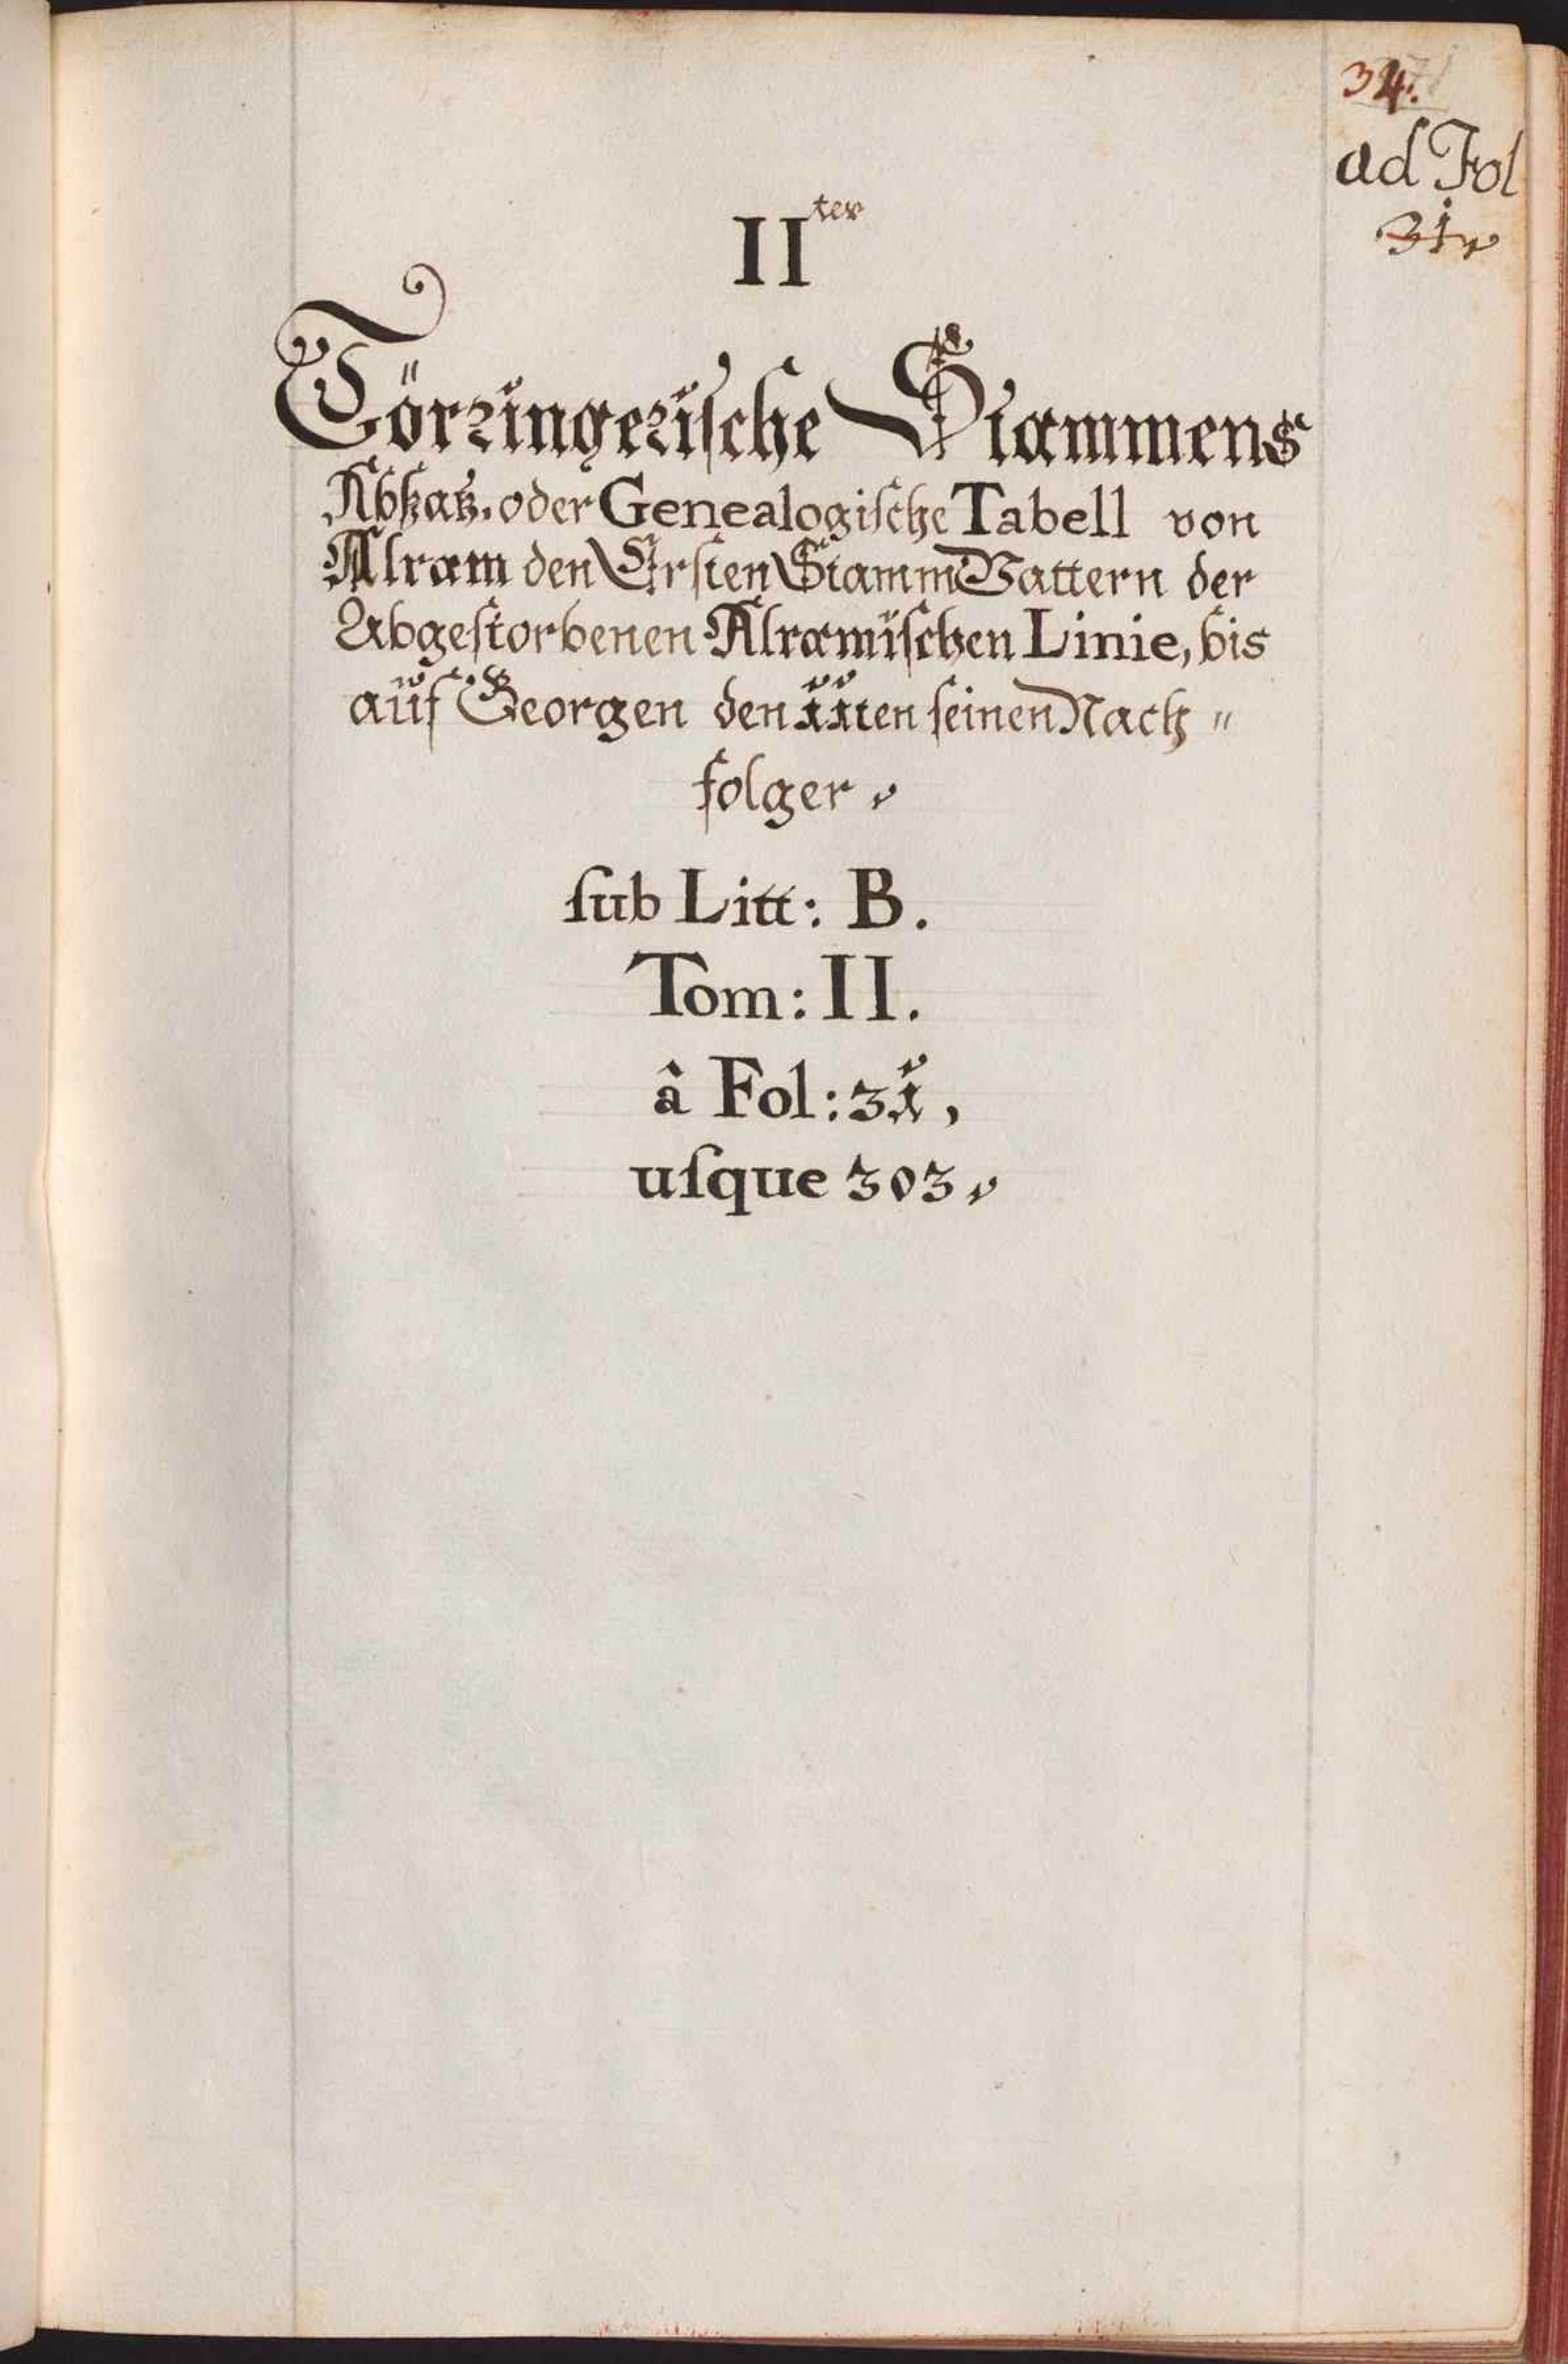 34.
ad Fol
31
IIter
Törringerische Stammens
Absaz, oder Genealogische Tabell von
Alram den Ersten StammVattern der
Abgestorbenen Alramischen Linie, bis
aüf Georgen den 11ten seinen Nach=
folger
sub Litt: B.
Tom: II.
â Fol: 31,
usque 303